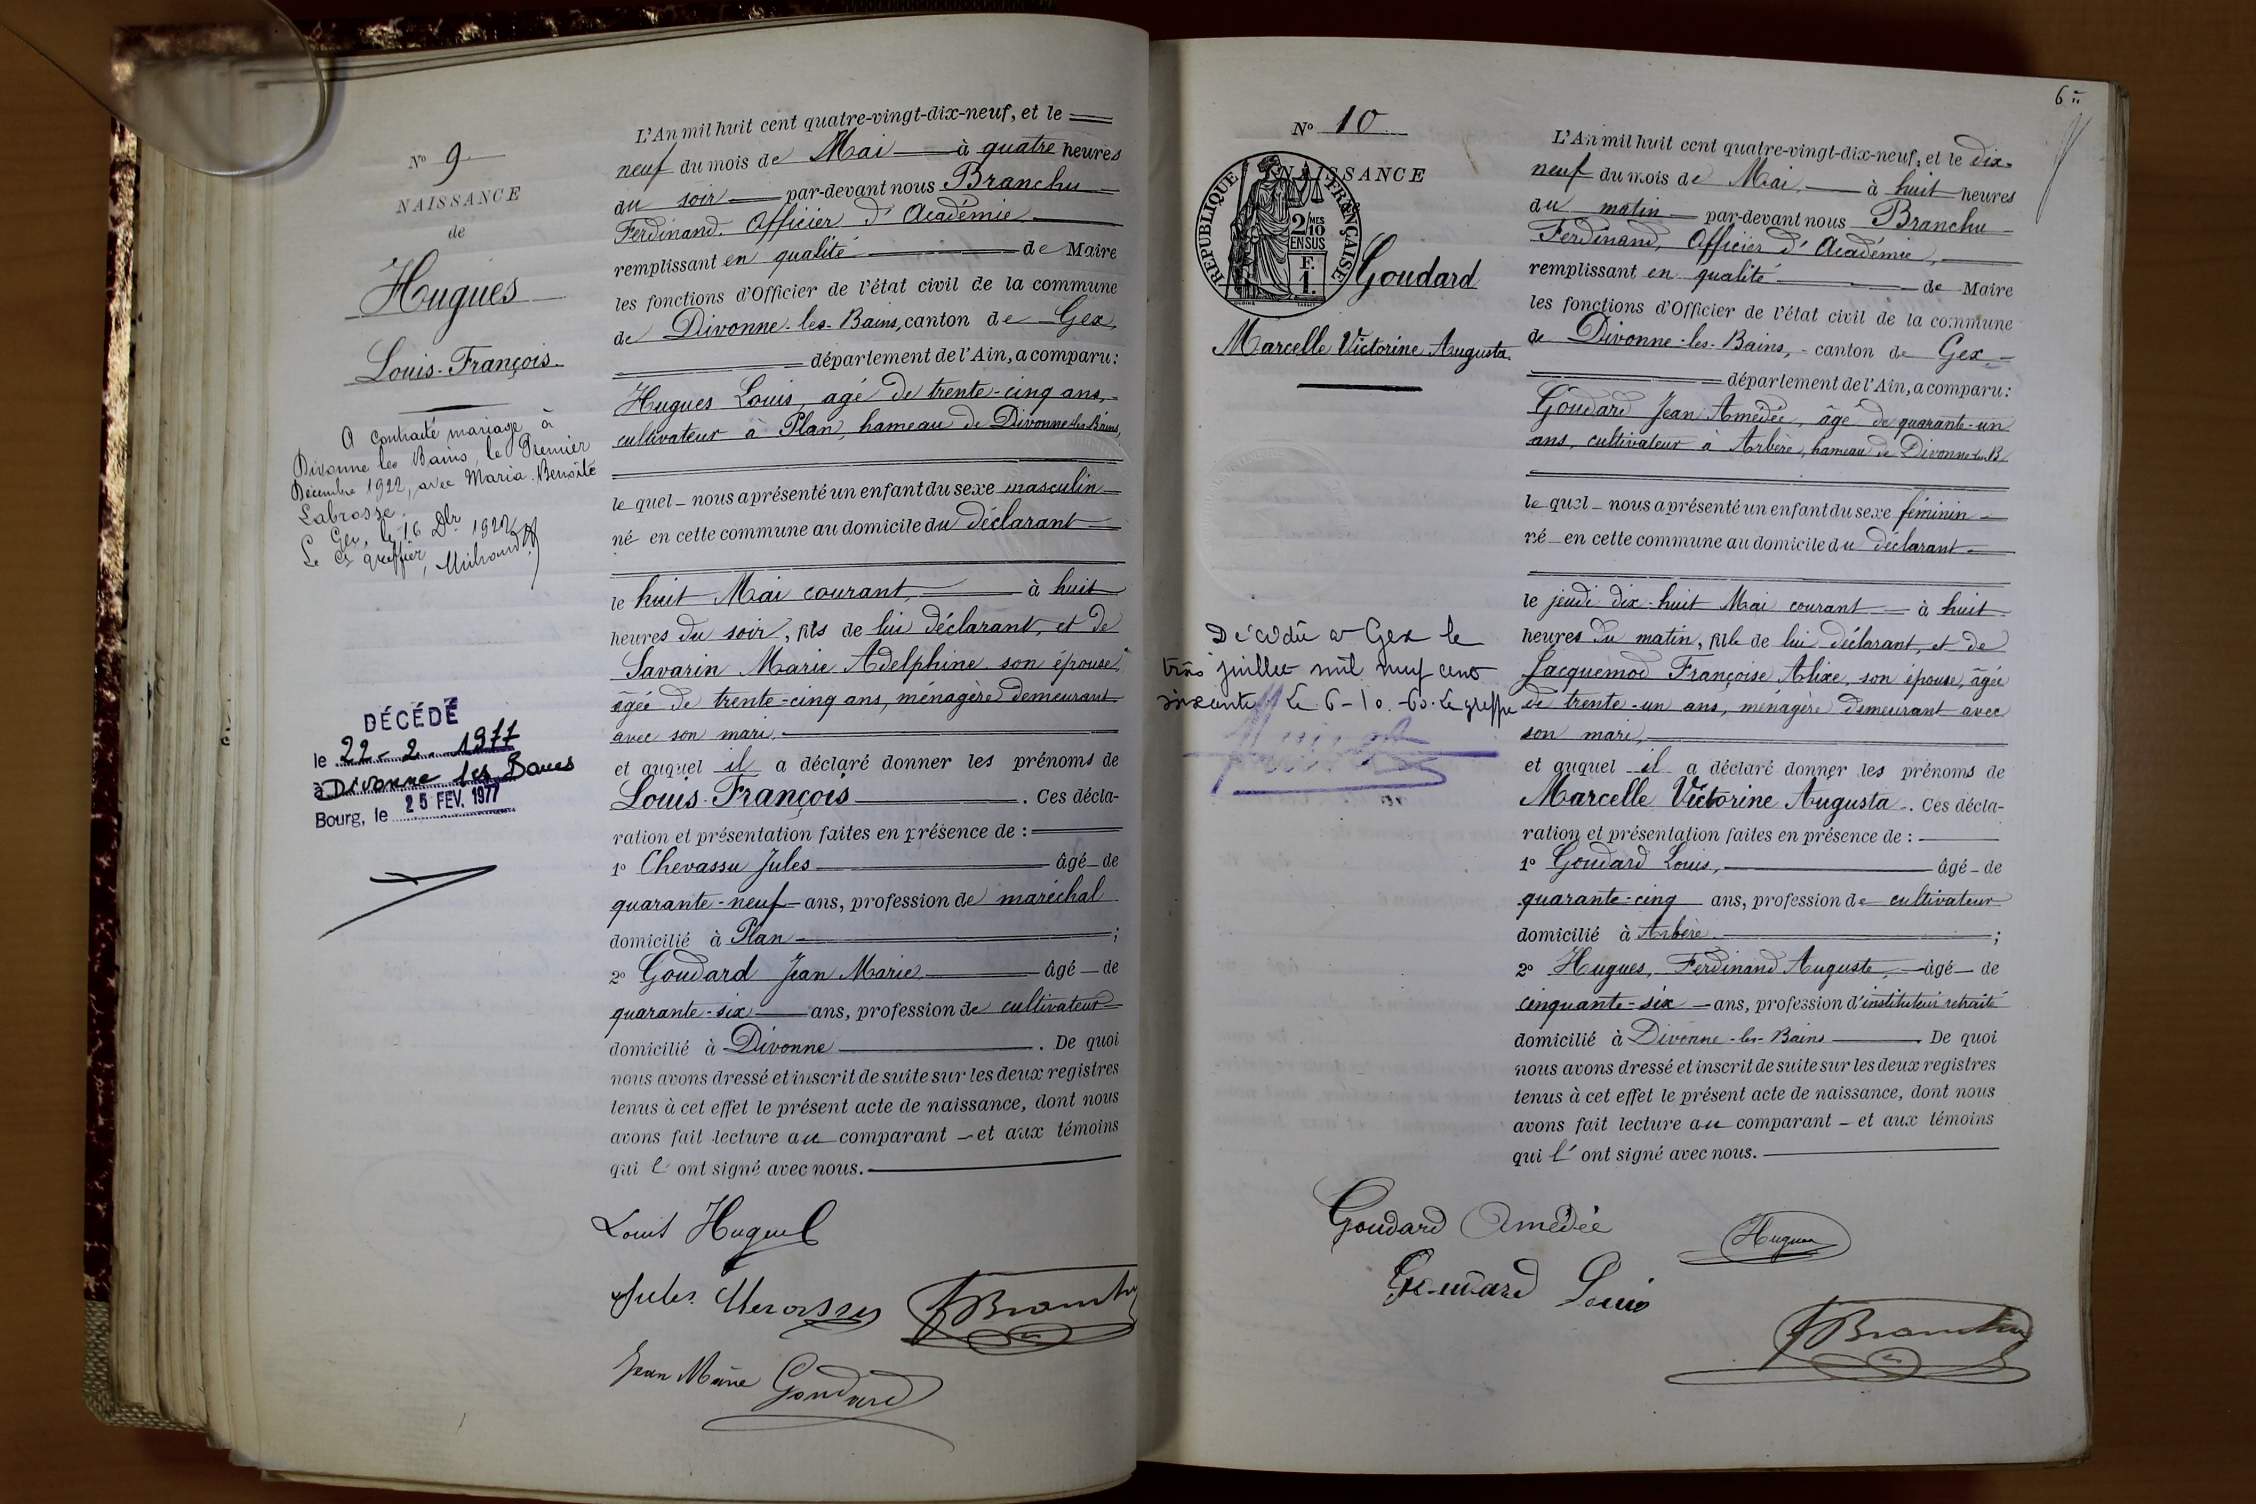 N° 9
NAISSANCE
de
Hugues
Louis-François
A contracté mariage à
Divonne les Bains, le Premier
Décembre 1922, avec Maria Benoîte
Labrosse.
Gex, le 16 Dbr 1922
Le greffier,
DÉCÉDÉ
le 22-2-1977
à Divonne les Bains
Bourg, le 25 FEV. 1977
L'An mil huit cent quatre-vingt-dix-neuf, et le
neuf du mois de Mai à quatre heures
du soir par-devant nous Branchu
Ferdinand, Officier d'Académie
remplissant en qualité de Maire
les fonctions d'Officier de l'état civil de la commune
de Divonne-les-Bains, canton de Gex,
département de l'Ain, a comparu:
Hugues Louis, agé de trente-cinq ans,
cultivateur à Plan, hameau de Divonne-les-Bains,
le quel nous a présenté un enfant du sexe masculin
né en cette commune au domicile du déclarant
le huit Mai courant, à huit
heures du soir, fils de lui déclarant, et de
Savarin Marie Adelphine son épouse,
âgée de trente-cinq ans, ménagère demeurant
avec son mari,
et auquel il a déclaré donner les prénoms de
Louis-François. Ces décla-
ration et présentation faites en présence de :
1° Chevassu Jules âgé de
quarante-neuf ans, profession de maréchal
domicilié à Plan ;
2° Goudard Jean Marie âgé de
quarante-six ans, profession de cultivateur
domicilié à Divonne. De quoi
nous avons dressé et inscrit de suite sur les deux registres
tenus à cet effet le présent acte de naissance, dont nous
avons fait lecture au comparant et aux témoins
qui l' ont signé avec nous.
Louis Hugues
Jules Chevassu
Branchu
Jean Marie Goudard
6
N° 10
NAISSANCE
REPUBLIQUE FRANÇAISE
2/10 MES
EN SUS
F.
1.
Goudard
Marcelle Victorine Augusta
Décédée à Gex le
trois juillet mil neuf cent
soixante. Le 6-10-60. Le greffier
L'An mil huit cent quatre-vingt-dix-neuf, et le dix-
neuf du mois de Mai, à huit heures
du matin par-devant nous Branchu
Ferdinand, Officier d'Académie,
remplissant en qualité de Maire
les fonctions d'Officier de l'état civil de la commune
de Divonne-les-Bains, canton de Gex
département de l'Ain, a comparu:
Goudard Jean Amédée, âgé de quarante-un
ans, cultivateur à Arbère, hameau de Divonne-les-B
le quel nous a présenté un enfant du sexe féminin
né en cette commune au domicile du déclarant
le jeudi dix-huit Mai courant à huit
heures du matin, fille de lui déclarant, et de
Jacquemod Françoise Alixe, son épouse, âgée
de trente-un ans, ménagère demeurant avec
son mari,
et auquel il a déclaré donner les prénoms de
Marcelle Victorine Augusta. Ces décla-
ration et présentation faites en présence de :
1° Goudard Louis, âgé de
quarante-cinq ans, profession de cultivateur
domicilié à Arbère ;
2° Hugues, Ferdinand Auguste, âgé de
cinquante-six ans, profession d'instituteur retraité
domicilié à Divonne-les-Bains De quoi
nous avons dressé et inscrit de suite sur les deux registres
tenus à cet effet le présent acte de naissance, dont nous
avons fait lecture au comparant et aux témoins
qui l' ont signé avec nous.
Goudard Amédée
Hugues
Goudard Louis
Branchu